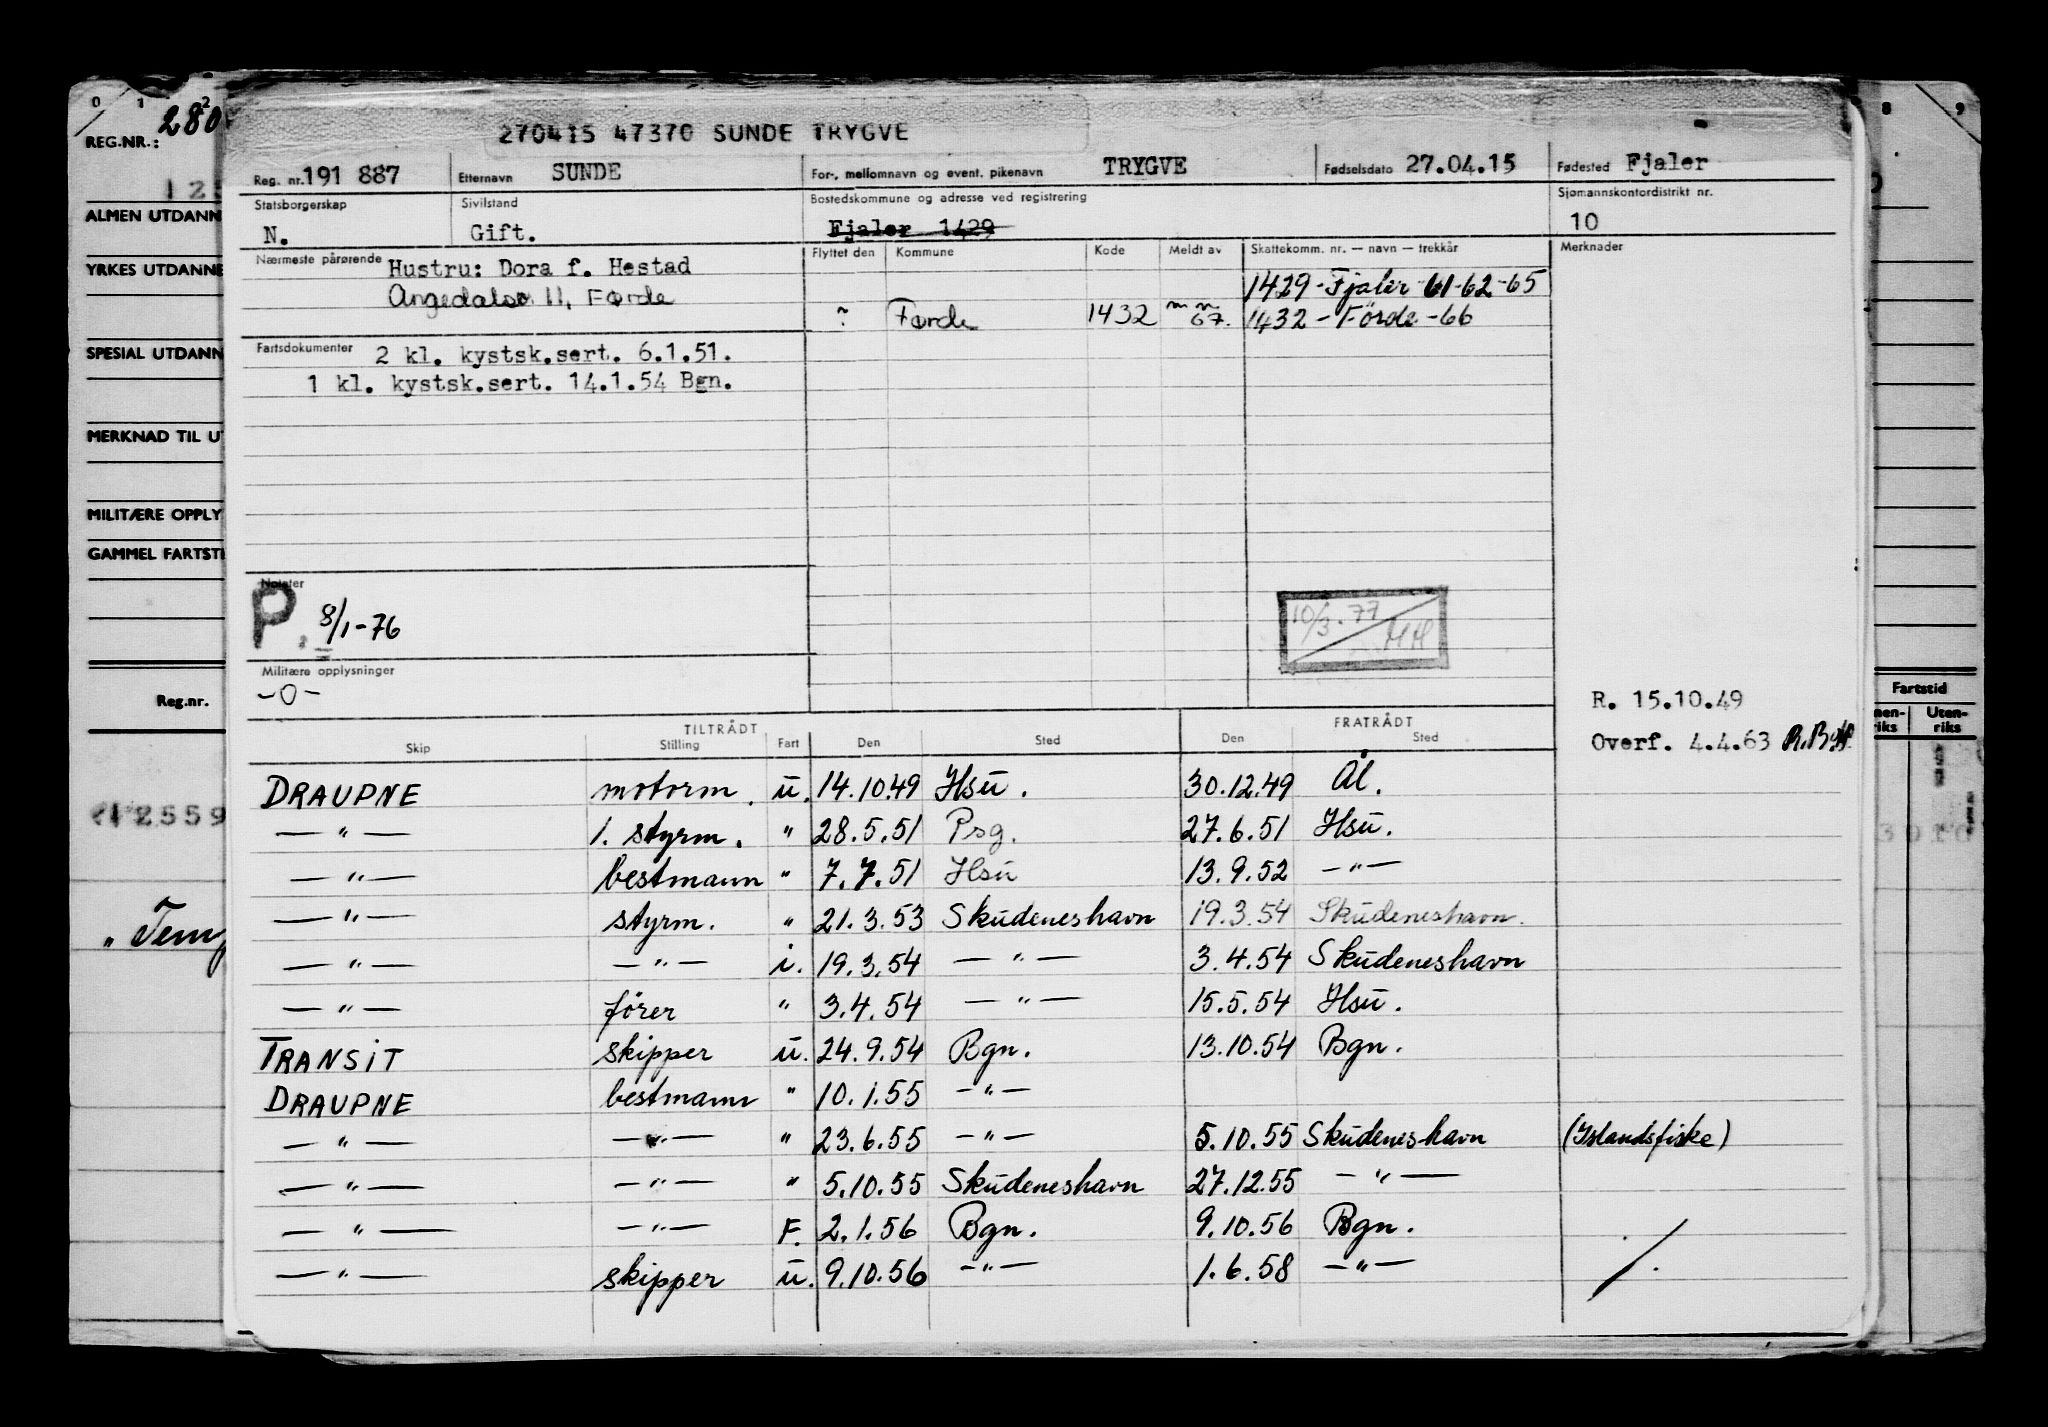 0 1 2
REG.NR.: 280
ALMEN UTDANN
YRKES UTDANNE
SPESIAL UTDANN
MERKNAD TIL UT
MILITÆRE OPPLY
GAMMEL FARTSTI
Reg.nr.
2559
8 9
Fartstid
Uten-
riks riks
270415 47370 SUNDE TRYGVE
Reg. nr. 191 887 Etternavn SUNDE For-, mellomnavn og event. pikenavn TRYGVE Fødselsdato 27.04.15 Fødested Fjaler
Statsborgerskap Sivilstand Bostedskommune og adresse ved registrering Sjømannskontordistrikt nr.
N. Gift. Fjaler 1429 10
Nærmeste pårørende Hustru: Dora f. Hestad Flyttet den Kommune Kode Meldt av Skattekomm. nr. — navn — trekkår Merknader
1429 - Fjaler 61-62-65
Angedalsv 11, Førde
? Førde 1432 67. 1432 - Förde - 66
Fartsdokumenter 2 kl. kystsk.sert. 6.1.51.
1 kl. kystsk.sert. 14.1.54 Bgn.
Notater
P. 8/1-76
10/3.77 HH
Militære opplysninger
-0-
R. 15.10.49
Overf. 4.4.63
TILTRÅDT FRATRÅDT
Skip Stilling Fart Den Sted Den Sted
DRAUPNE motorm. u. 14.10.49 Hsu. 30.12.49 Ål.
—"— 1. styrm. " 28.5.51 Psg. 27.6.51 Hsu.
—"— bestmann " 7.7.51 Hsu 13.9.52 —"—
—"— styrm. " 21.3.53 Skudeneshavn 19.3.54 Skudeneshavn.
—"— —"— i. 19.3.54 —"— 3.4.54 Skudeneshavn
—"— förer " 3.4.54 —"— 15.5.54 Hsu.
TRANSIT skipper u. 24.9.54 Bgn. 13.10.54 Bgn.
DRAUPNE bestmann " 10.1.55 —"—
—"— —"— " 23.6.55 —"— 5.10.55 Skudeneshavn (Islandsfiske)
—"— —"— " 5.10.55 Skudeneshavn 27.12.55 —"—
—"— —"— F. 2.1.56 Bgn. 9.10.56 Bgn.
—"— skipper u. 9.10.56 —"— 1.6.58 —"—